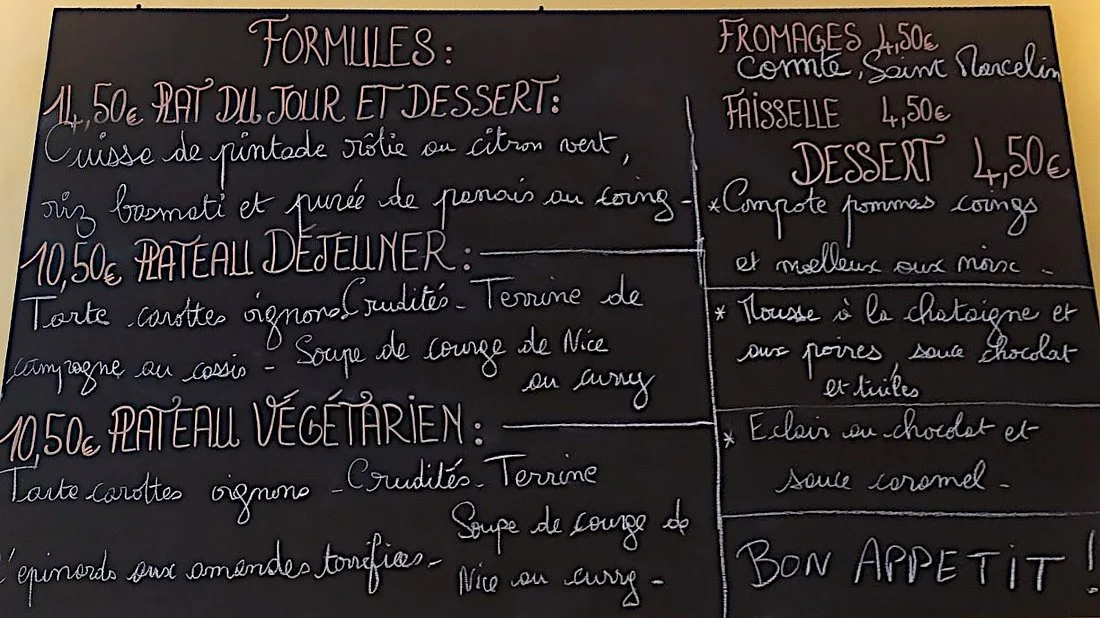 FORMULES :
14,50€ PLAT DU JOUR ET DESSERT :
Cuisse de pintade rôtie au citron vert,
riz basmati et purée de panais au coing -
10,50€ PLATEAU DÉJEUNER :
Tarte carottes oignons - Crudités - Terrine de
campagne au cassis - Soupe de courge de Nice
au curry
10,50€ PLATEAU VÉGÉTARIEN :
Tarte carottes oignons - Crudités - Terrine
d'épinards aux amandes torréfiées -
Soupe de courge de
Nice au curry -
FROMAGES 4,50€
Comté, Saint Marcelin
FAISSELLE 4,50€
DESSERT 4,50€
* Compote pommes coings
et moelleux aux noix -
* Mousse à la chataigne et
aux poires sauce chocolat
et tuiles
* Eclair au chocolat et
sauce caramel -
BON APPETIT !